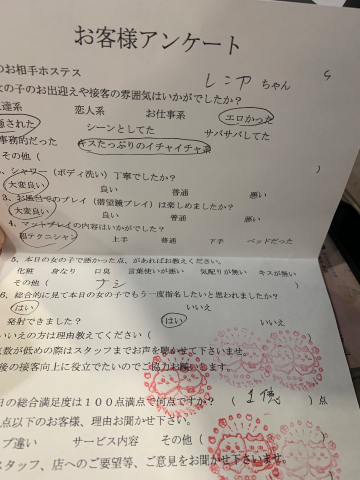 お客様アンケート
のお相手ホステス レニア ちゃん
女の子のお出迎えや接客の雰囲気はいかがでしたか?
達系 恋人系 お仕事系 エロかった
癒された シーンとしてた サバサバしてた
事務的だった キスたっぷりのイチャイチャ系
その他( )
、シャワー(ボディ洗い)丁寧でしたか?
大変良い 良い 普通 悪い
3、お風呂でのプレイ(潜望鏡プレイ)は楽しめましたか?
大変良い 良い 普通 悪い
4、マットプレイの内容はいかがでした?
超テクニシャン 上手 普通 下手 ベッドだった
5、本日の女の子で悪かった点、があればお教えください。
化粧 身なり 口臭 言葉使いが悪い 気配りが無い キスが無い
その他( ナシ
6、総合的に見て本日の女の子でもう一度指名したいと思われましたか?
はい いいえ
発射できました? はい いいえ
いいえの方は理由教えてください(
点数が低めの際はスタッフまでお声を掛けて下さいませ。
後の接客向上に役立でたいのでご協力お願いします。
日の総合満足度は100点満点で何点ですか? ( 1億 )点
点以下のお客様、理由お聞かせ下さい。
プ違い サービス内容 その他(
スタッフ、店へのご要望等、ご意見をお聞かせ下さいませ。